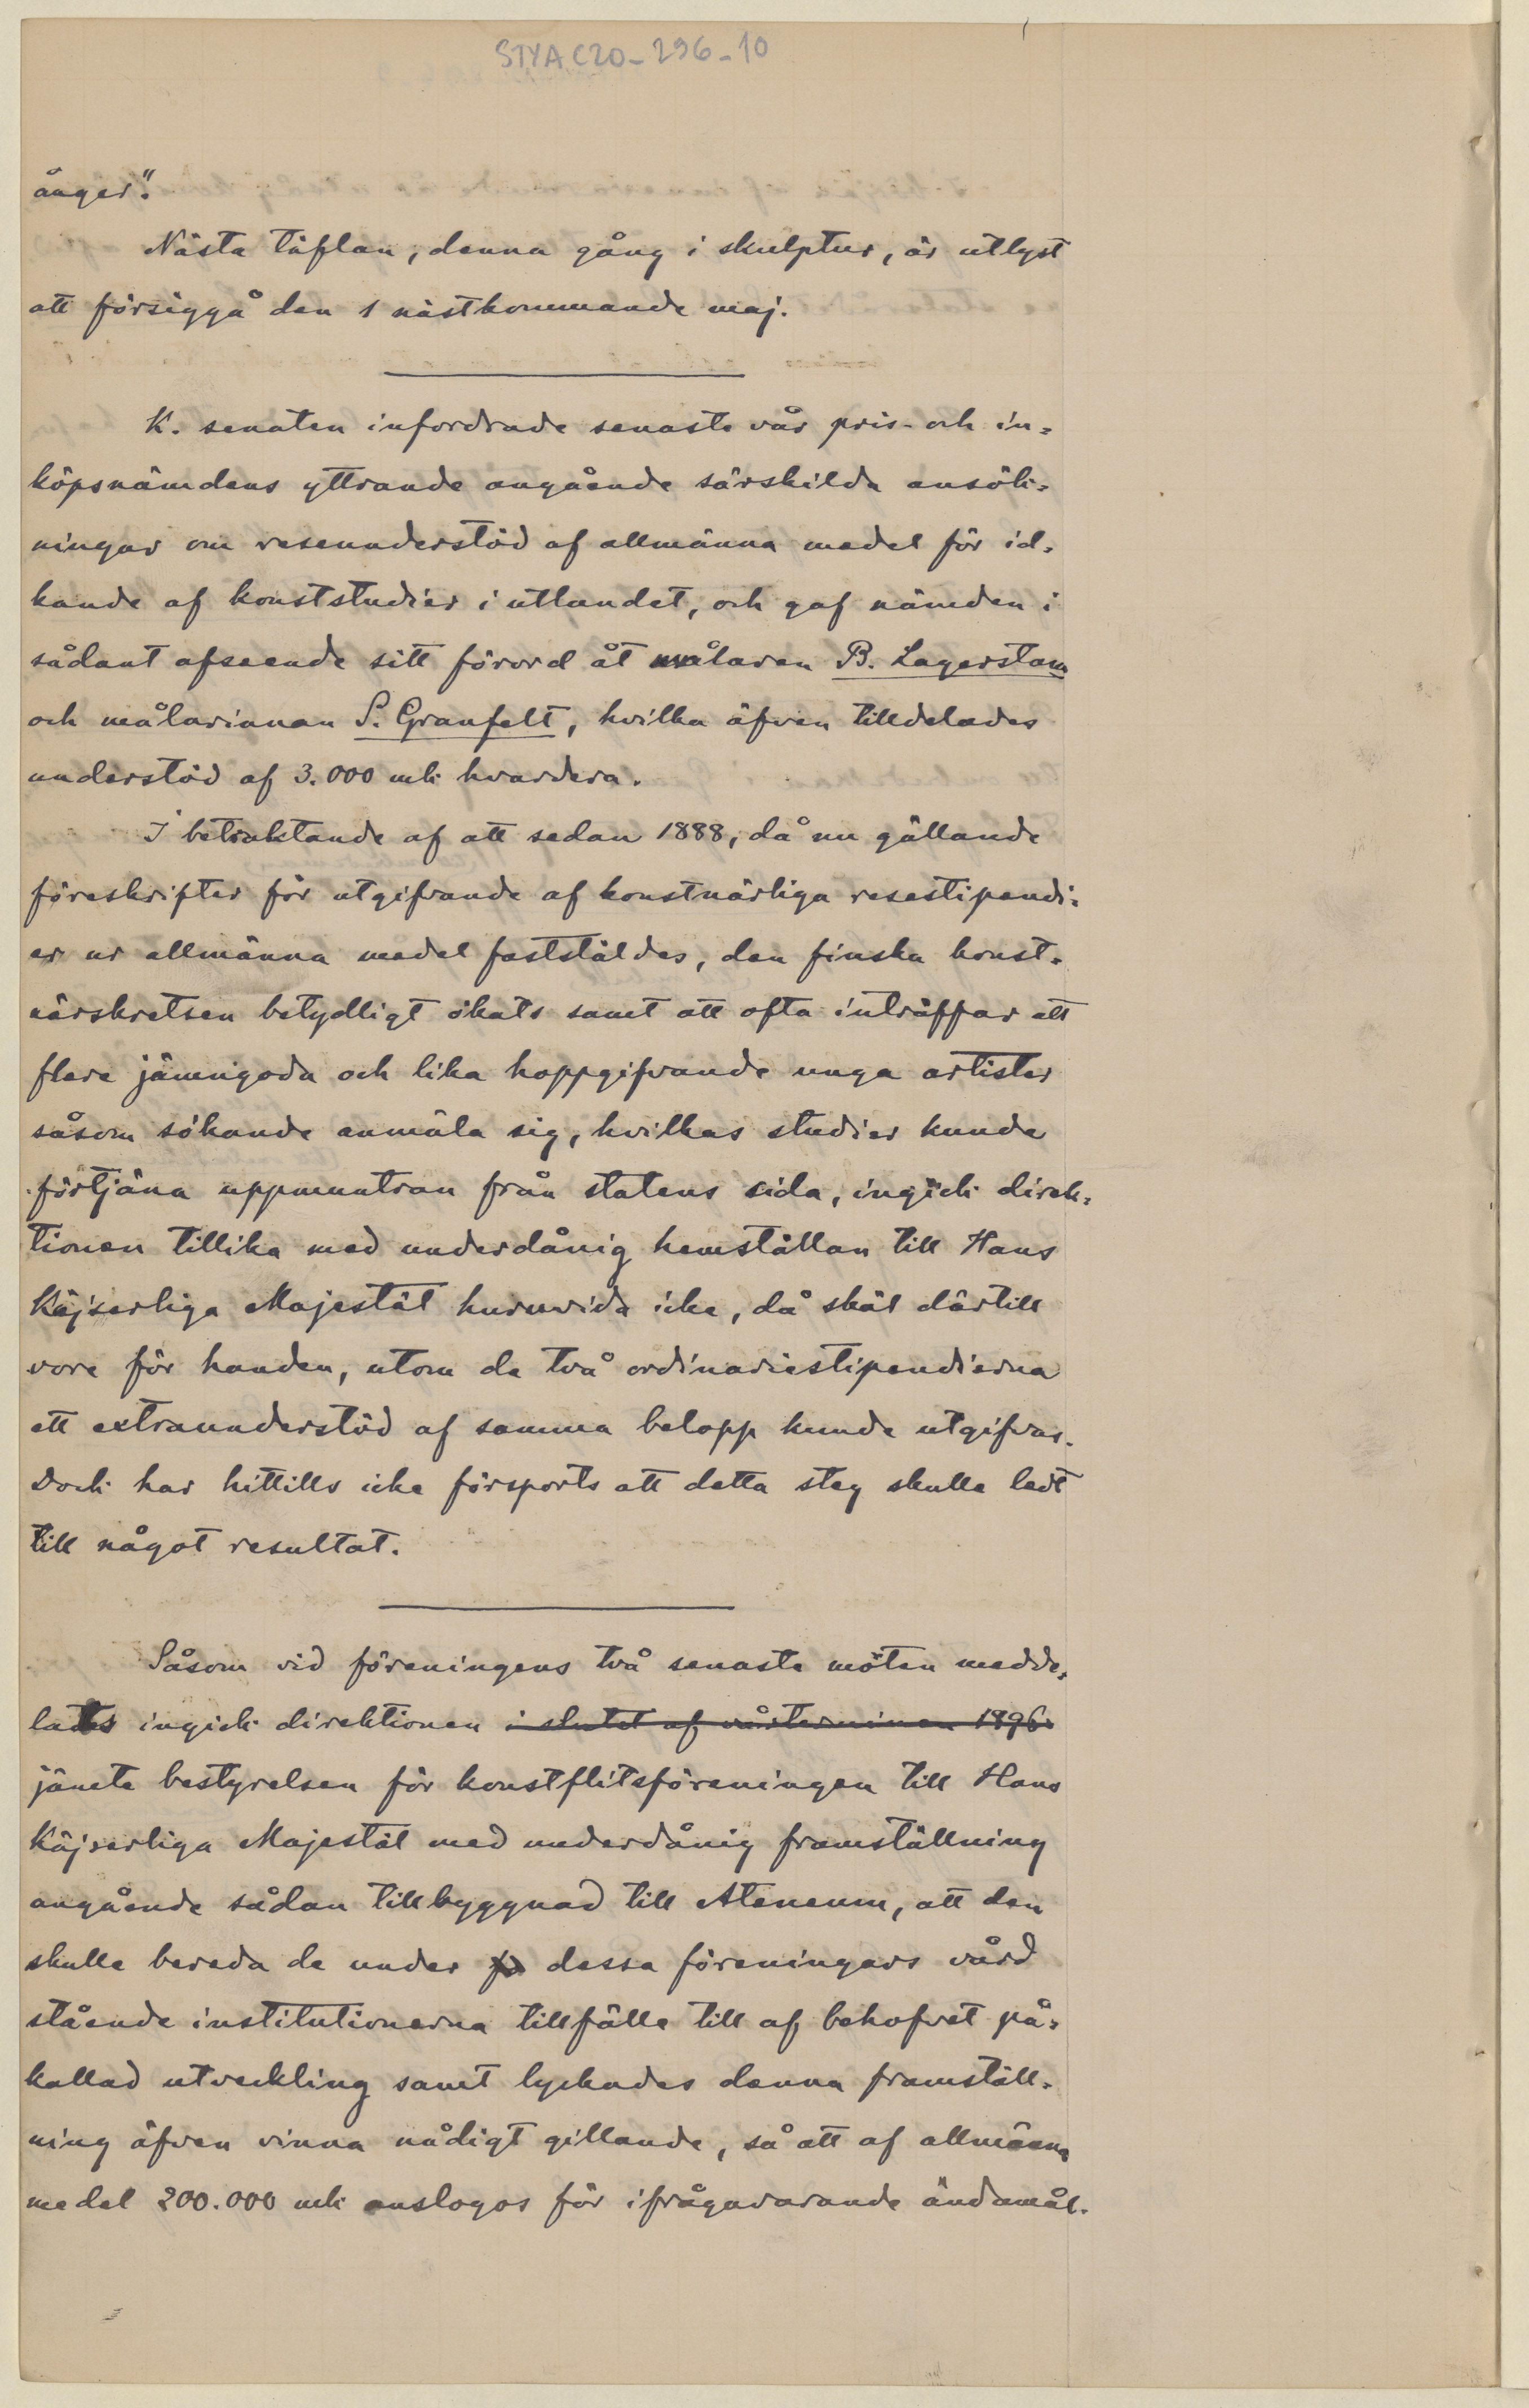 STYA C20-296-10
ånger".
Nästa täflan, denna gång i skulptur, är utlyst
att försiggå den 1 nästkommande maj.
K. senaten infordrade senaste vår pris- och in-
köpsnämdens yttrande angående särskilda ansök-
ningar om reseunderstöd af allmänna medel för id-
kande af konststudier i utlandet, och gaf nämden i
sådant afseende sitt förord åt målaren B. Lagerstam
och målarinnan S. Granfelt, hvilka äfven tilldelades
understöd af 3.000 mk hvardera.
I betraktande af att sedan 1888, då nu gällande
föreskrifter för utgifvande af konstnärliga resestipendi-
er ur allmänna medel fastställdes, den finska konst-
närskretsen betydligt ökats samt att ofta inträffar att
flere jämngoda och lika hoppgifvande unga artister
såsom sökande anmäla sig, hvilkas studier kunde
förtjäna uppmuntran från statens sida, ingick direk-
tionen tillika med underdånig hemställan till Hans
Kejserliga Majestät huruvida icke, då skäl därtill
vore för handen, utom de två ordinariestipendierna
ett extraunderstöd af samma belopp kunde utgifvas.
Dock har hittills icke försports att detta steg skulle ledt
till något resultat.
Såsom vid föreningens två senaste möten medde-
lats ingick direktionen i slutet af vårterminen 1896
jämte bestyrelsen för konstflitsföreningen till Hans
Kejserliga Majestät med underdånig framställning
angående sådan tillbyggnad till Ateneum, att den
skulle bereda de under dessa föreningars vård
stående institutionerna tillfälle till af behofvet på-
kallad utveckling samt lyckades denna framställ-
ning äfven vinna nådigt gillande, så att af allmänna
medel 200.000 mk anslogos för ifrågavarande ändamål.